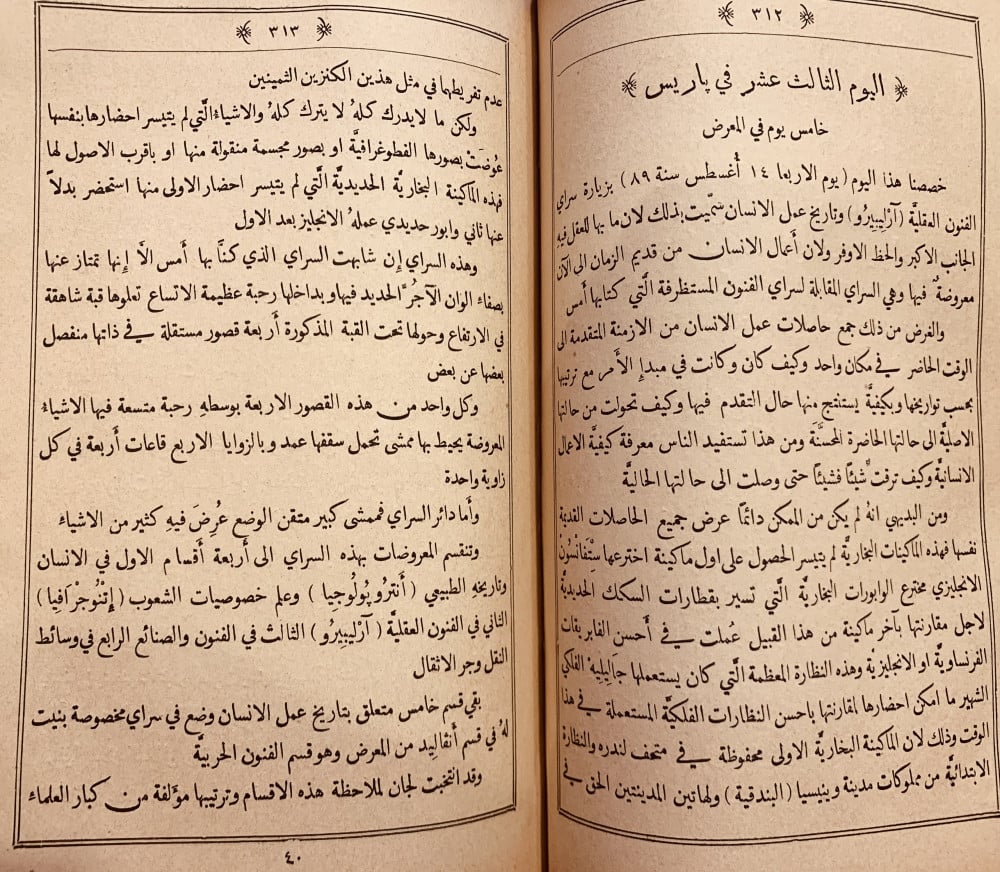 ﴿ ٣١٢ ﴾
﴿ اليوم الثالث عشر في باريس ﴾
خامس يوم في المعرض
خصصنا هذا اليوم (يوم الاربعا ١٤ أغسطس سنة ٨٩) بزيارة سراي
الفنون العقليَّة (آرْليبيرُو) وتاريخ عمل الانسان سمّيت بذلك لان ما بها للعقل فيه
الجانب الاكبر والحظ الاوفر ولان أعمال الانسان من قديم الزمان الى الآن
معروضة فيها وهي السراي المقابلة لسراي الفنون المستظرفة الَّتي كنا بها أمس
والغرض من ذلك جمع حاصلات عمل الانسان من الازمنة المتقدمة الى
الوقت الحاضر في مكان واحد وكيف كان وكانت في مبدإ الأمر مع ترتيبها
بحسب تواريخها وبكيفيَّة يستنتج منها حال التقدم فيها وكيف تحولت من حالتها
الاصليَّة الى حالتها الحاضرة المحسنَّة ومن هذا تستفيد الناس معرفة كيفيَّة الاعمال
الانسانيَّة وكيف ترقت شيئًا فشيئًا حتى وصلت الى حالتها الحاليَّة
ومن البديهي انهُ لم يكن من الممكن دائمًا عرض جميع الحاصلات القديمة
نفسها فهذه الماكينات البخاريَّة لم يتيسر الحصول على اول ماكينة اخترعها ستْفانْسُونْ
الانجليزي مخترع الوابورات البخاريَّة الَّتي تسير بقطارات السكك الحديديَّة
لاجل مقارنتها بآخر ماكينة من هذا القبيل عُملت في أحسن الفابريقات
الفرنساويَّة او الانجليزيَّة وهذه النظارة المعظمة الَّتي كان يستعملها جَاليليه الفلكي
الشهير ما امكن احضارها لمقارنتها باحسن النظارات الفلكيَّة المستعملة في هذا
الوقت وذلك لان الماكينة البخاريَّة الاولى محفوظة في متحف لندره والنظارة
الابتدائيَّة من مملوكات مدينة وينيسيا (البندقية) ولهاتين المدينتين الحق في
﴿ ٣١٣ ﴾
عدم تفريطهما في مثل هذين الكنزين الثمينين
ولكن ما لايدرك كلهُ لا يترك كلهُ والاشياءُ الَّتي لم يتيسر احضارها بنفسها
عُوضَتْ بصورها الفطوغرافيَّة او بصور مجسمة منقولة منها او باقرب الاصول لها
فهذه الماكينة البخاريَّة الحديديَّة الَّتي لم يتيسر احضار الاولى منها استحضر بدلاً
عنها ثاني وابور حديدي عملهُ الانجليز بعد الاول
وهذه السراي إن شابهت السراي الذي كنَّا بها أمس الاَّ إنها تمتاز عنها
بصفاء الوان الآجُرّ الحديد فيها وبداخلها رحبة عظيمة الاتساع تعلوها قبة شاهقة
في الارتفاع وحولها تحت القبة المذكورة أربعة قصور مستقلة في ذاتها منفصل
بعضها عن بعض
وكل واحد من هذه القصور الاربعة بوسطهِ رحبة متسعة فيها الاشياء
المعروضة يحيط بها ممشى تحمل سقفها عمد وبالزوايا الاربع قاعات أربعة في كل
زاوية واحدة
وأما دائر السراي فممشى كبير متقن الوضع عُرِضَ فيهِ كثير من الاشياء
وتنقسم المعروضات بهذه السراي الى أربعة أقسام الاول في الانسان
وتاريخهِ الطبيعي (أَنْتْرُوپُولُوجيا) وعلم خصوصيات الشعوب (إتْنُوجْرَافِيا)
الثاني في الفنون العقليَّة (آرْليبيرُو) الثالث في الفنون والصنائع الرابع في وسائط
النقل وجر الاثقال
بقي قسم خامس متعلق بتاريخ عمل الانسان وضع في سراي مخصوصة بنيت
لهُ في قسم أنفاليد من المعرض وهو قسم الفنون الحربيَّة
وقد انتخبت لجان لملاحظة هذه الاقسام وترتيبها مؤلفة من كبار العلماء
٤٠